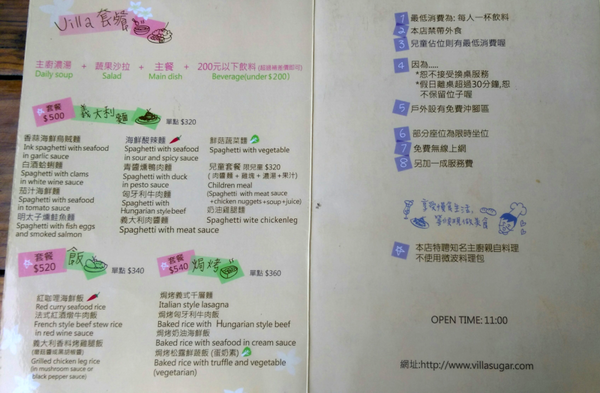 Villa 套餐
主廚濃湯 + 蔬果沙拉 + 主餐 + 200元以下飲料(超過補差價即可)
Daily soup Salad Main dish Beverage(under$200)
套餐 $500 義大利麵 單點 $320
香蒜海鮮烏賊麵
Ink spaghetti with seafood
in garlic sauce
白酒蛤蜊麵
Spaghetti with clams
in white wine sauce
茄汁海鮮麵
Spaghetti with seafood
in tomato sauce
明太子燻鮭魚麵
Spaghetti with fish eggs
and smoked salmon
海鮮酸辣麵
Spaghetti with seafood
in sour and spicy sauce
青醬燻鴨肉麵
Spaghetti with duck
in pesto sauce
匈牙利牛肉麵
Spaghetti with
Hungarian style beef
義大利肉醬麵
Spaghetti with meat sauce
鮮菇蔬菜麵
Spaghetti with vegetable
兒童套餐 限兒童 $320
(肉醬麵+雞塊+濃湯+果汁)
Children meal
(Spaghetti with meat sauce
+chicken nuggets+soup+juice)
奶油雞腿麵
Spaghetti wite chickenleg
套餐 $520 飯 單點 $340
紅咖哩海鮮飯
Red curry seafood rice
法式紅酒燴牛肉飯
French style beef stew rice
in red wine sauce
義大利香料烤雞腿飯
(蘑菇醬或黑胡椒醬)
Grilled chicken leg rice
(in mushroom sauce or
black pepper sauce)
套餐 $540 焗烤 單點 $360
焗烤義式千層麵
Italian style lasagna
焗烤匈牙利牛肉飯
Baked rice with Hungarian style beef
焗烤奶油海鮮飯
Baked rice with seafood in cream sauce
焗烤松露鮮蔬飯 (蛋奶素)
Baked rice with truffle and vegetable
(vegetarian)
1 最低消費為: 每人一杯飲料
2 本店禁帶外食
3 兒童佔位則有最低消費喔
4 因為.....
*恕不接受換桌服務
*假日離桌超過30分鐘,恕
不保留位子喔
5 戶外設有免費沖腳區
6 部分座位為限時坐位
7 免費無線上網
8 另加一成服務費
享受慢食生活,
本店特聘知名主廚親自料理
不使用微波料理包
OPEN TIME: 11:00
網址:http://www.villasugar.com